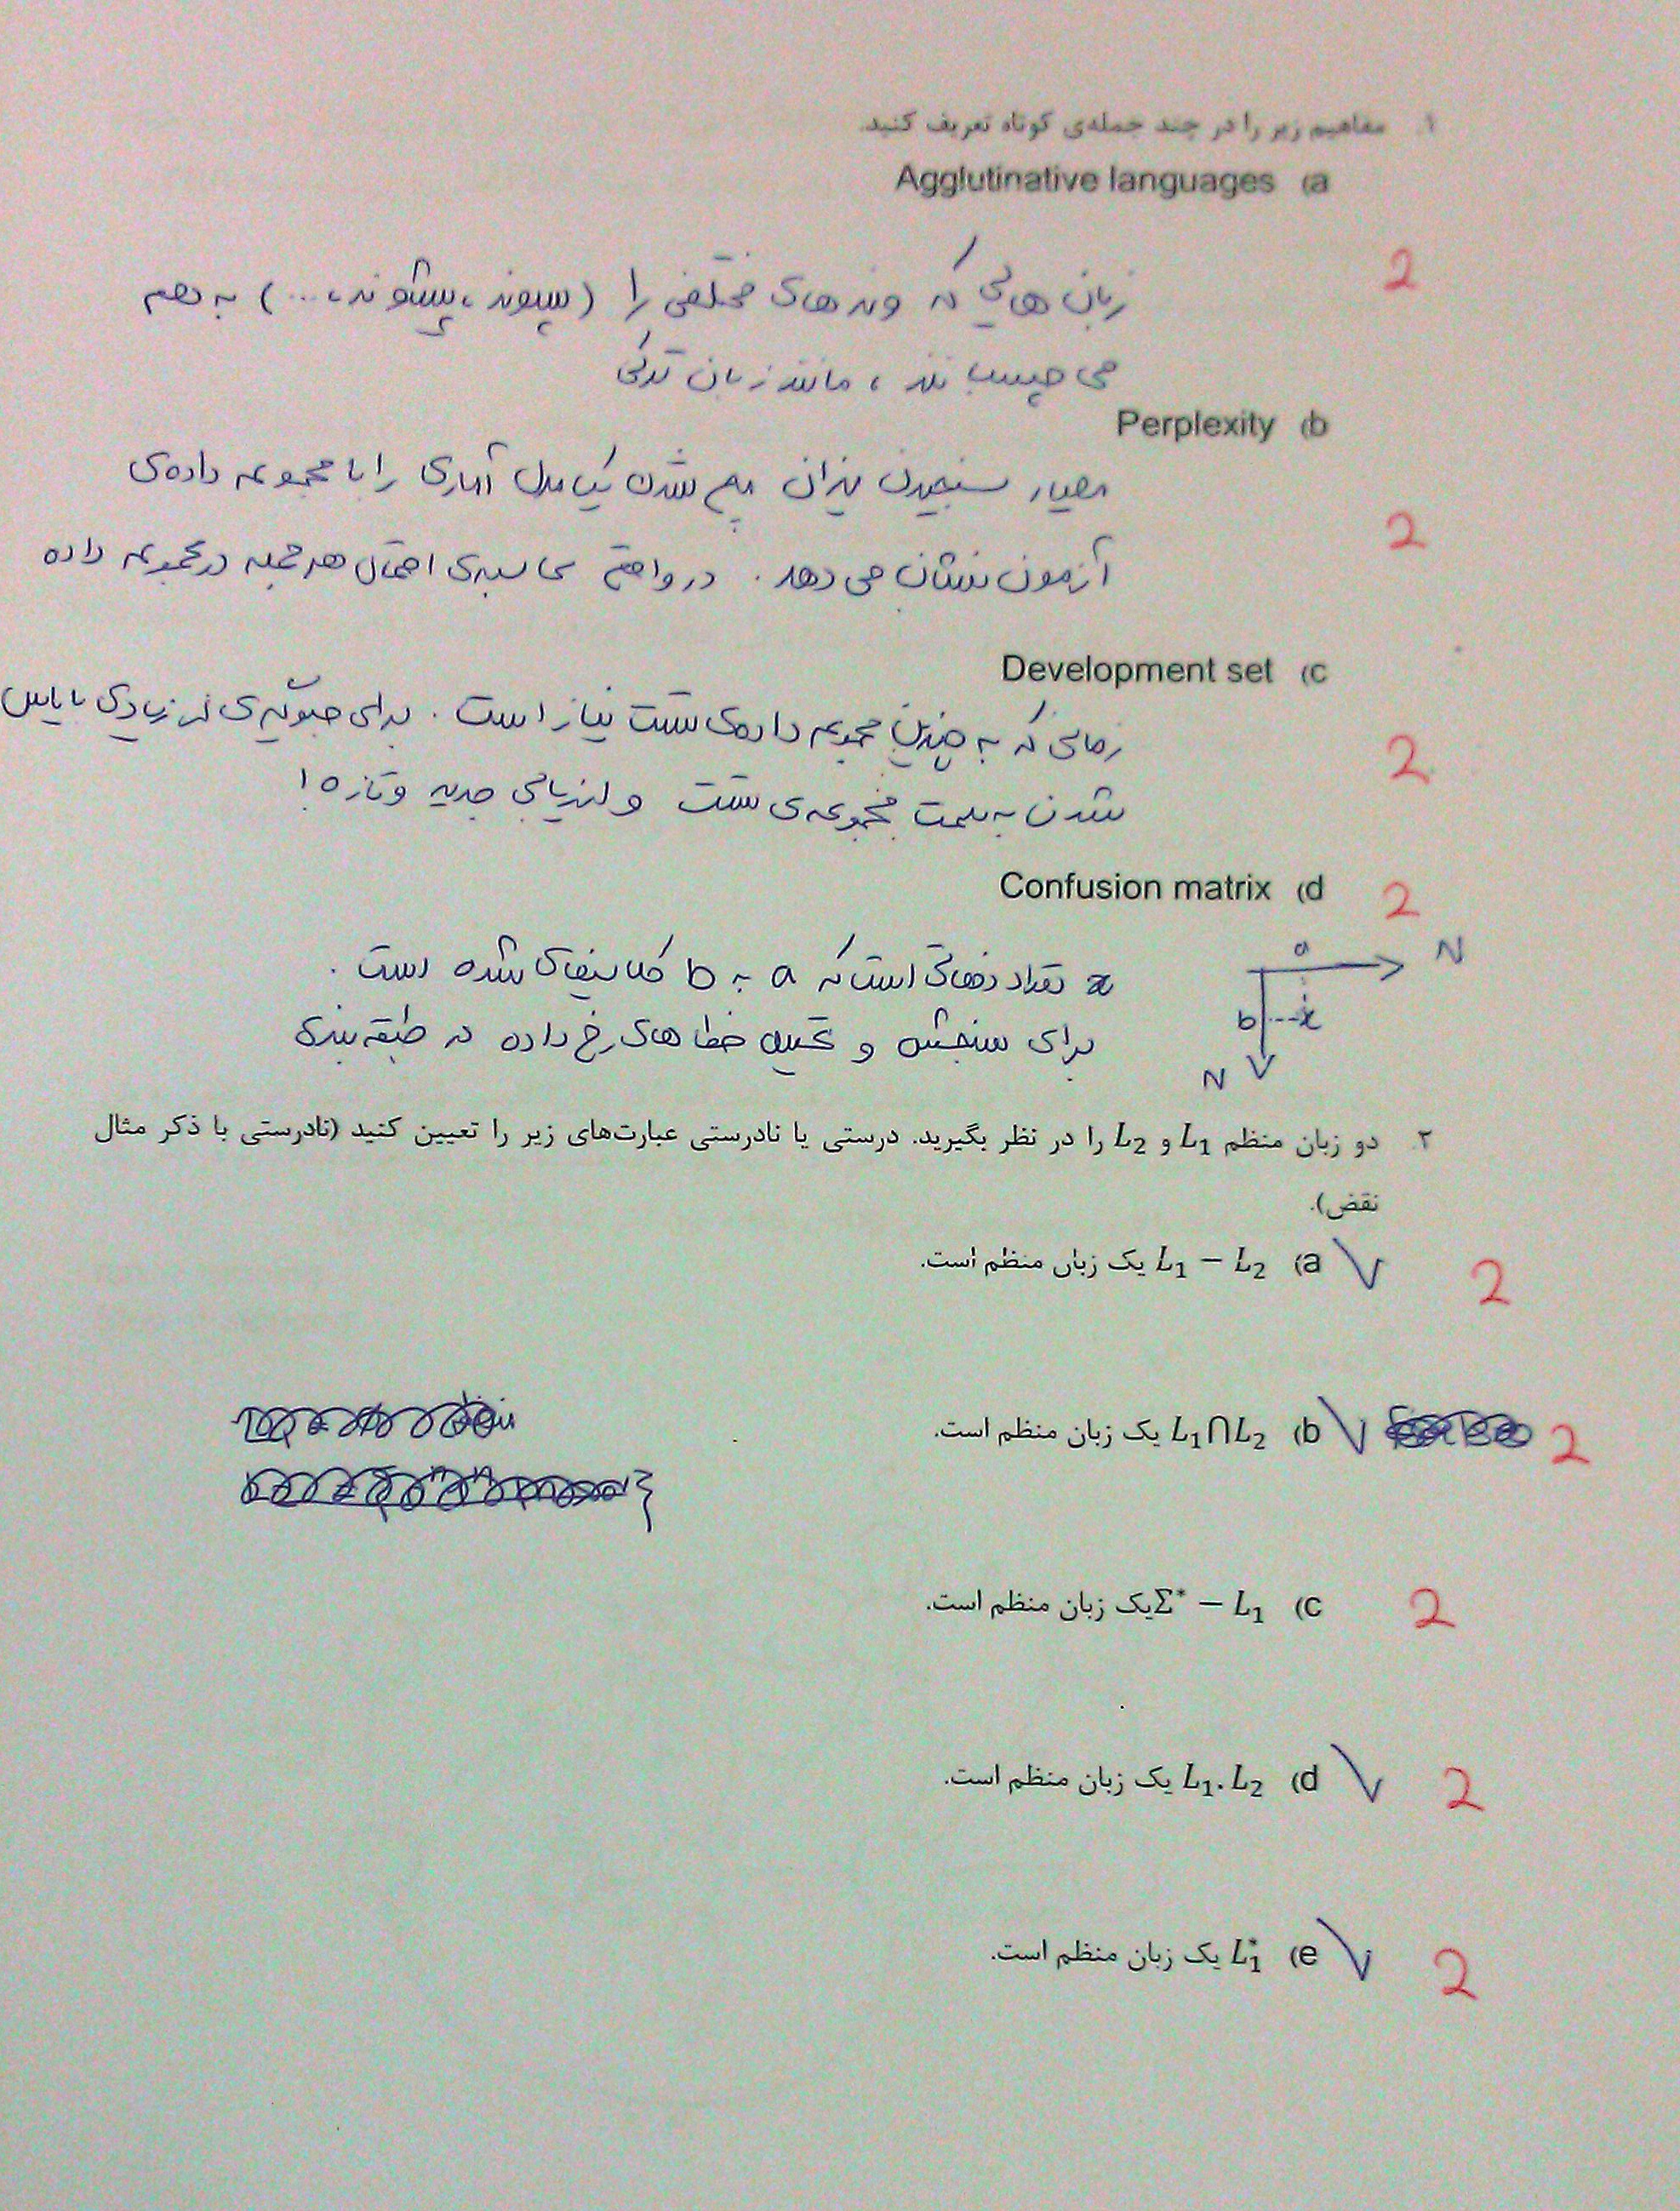 ۱. مفاهیم زیر را در چند جمله‌ی کوتاه تعریف کنید.
Agglutinative languages (a
2
زبان هایی که وندهای مختلفی را (پسوند، پیشوند، ...) به هم
می چسبانند، مانند زبان ترکی
Perplexity (b
معیار سنجیدن میزان شدن یک مدل آماری را با مجموعه داده‌ی
2
آزمون نشان می دهد. در واقع محاسبه‌ی احتمال هر جمله در مجموعه داده
Development set (c
زمانی که به چندین مجموعه داده‌ی تست نیاز است. برای جلوگیری از زیادی بایاس
2
شدن به سمت مجموعه‌ی تست و ارزیابی جدید و تازه!
Confusion matrix (d
2
a N
x تعداد دفعاتی است که a به b کلاسیفای شده است.
b x
برای سنجش و تحلیل خطاهای رخ داده در طبقه بندی
N
۲. دو زبان منظم L₁ و L₂ را در نظر بگیرید. درستی یا نادرستی عبارت‌های زیر را تعیین کنید (نادرستی با ذکر مثال
نقض).
a) L₁ − L₂ یک زبان منظم است.
2
b) L₁∩L₂ یک زبان منظم است.
2
c) Σ* − L₁یک زبان منظم است.
2
d) L₁. L₂ یک زبان منظم است.
2
e) L₁* یک زبان منظم است.
2